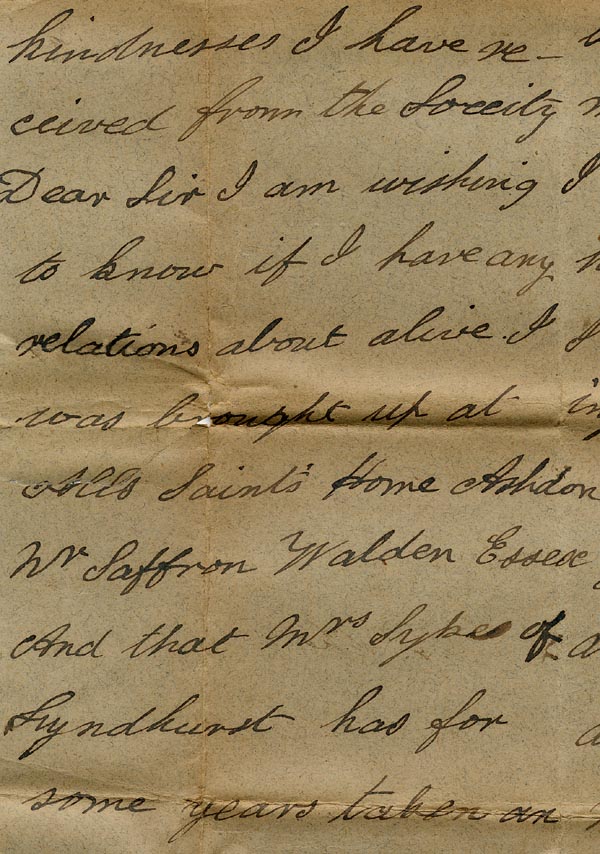 kindnesses I have re-
ceived fromn the Soceity
Dear Sir I am wishing I
to know if I have any
relations about alive. I
was brought up at
Alls Saint's Home Ashdon
Nr Saffron Walden Essex
And that Mrs Sykes of
Lyndhurst has for
some years taken an